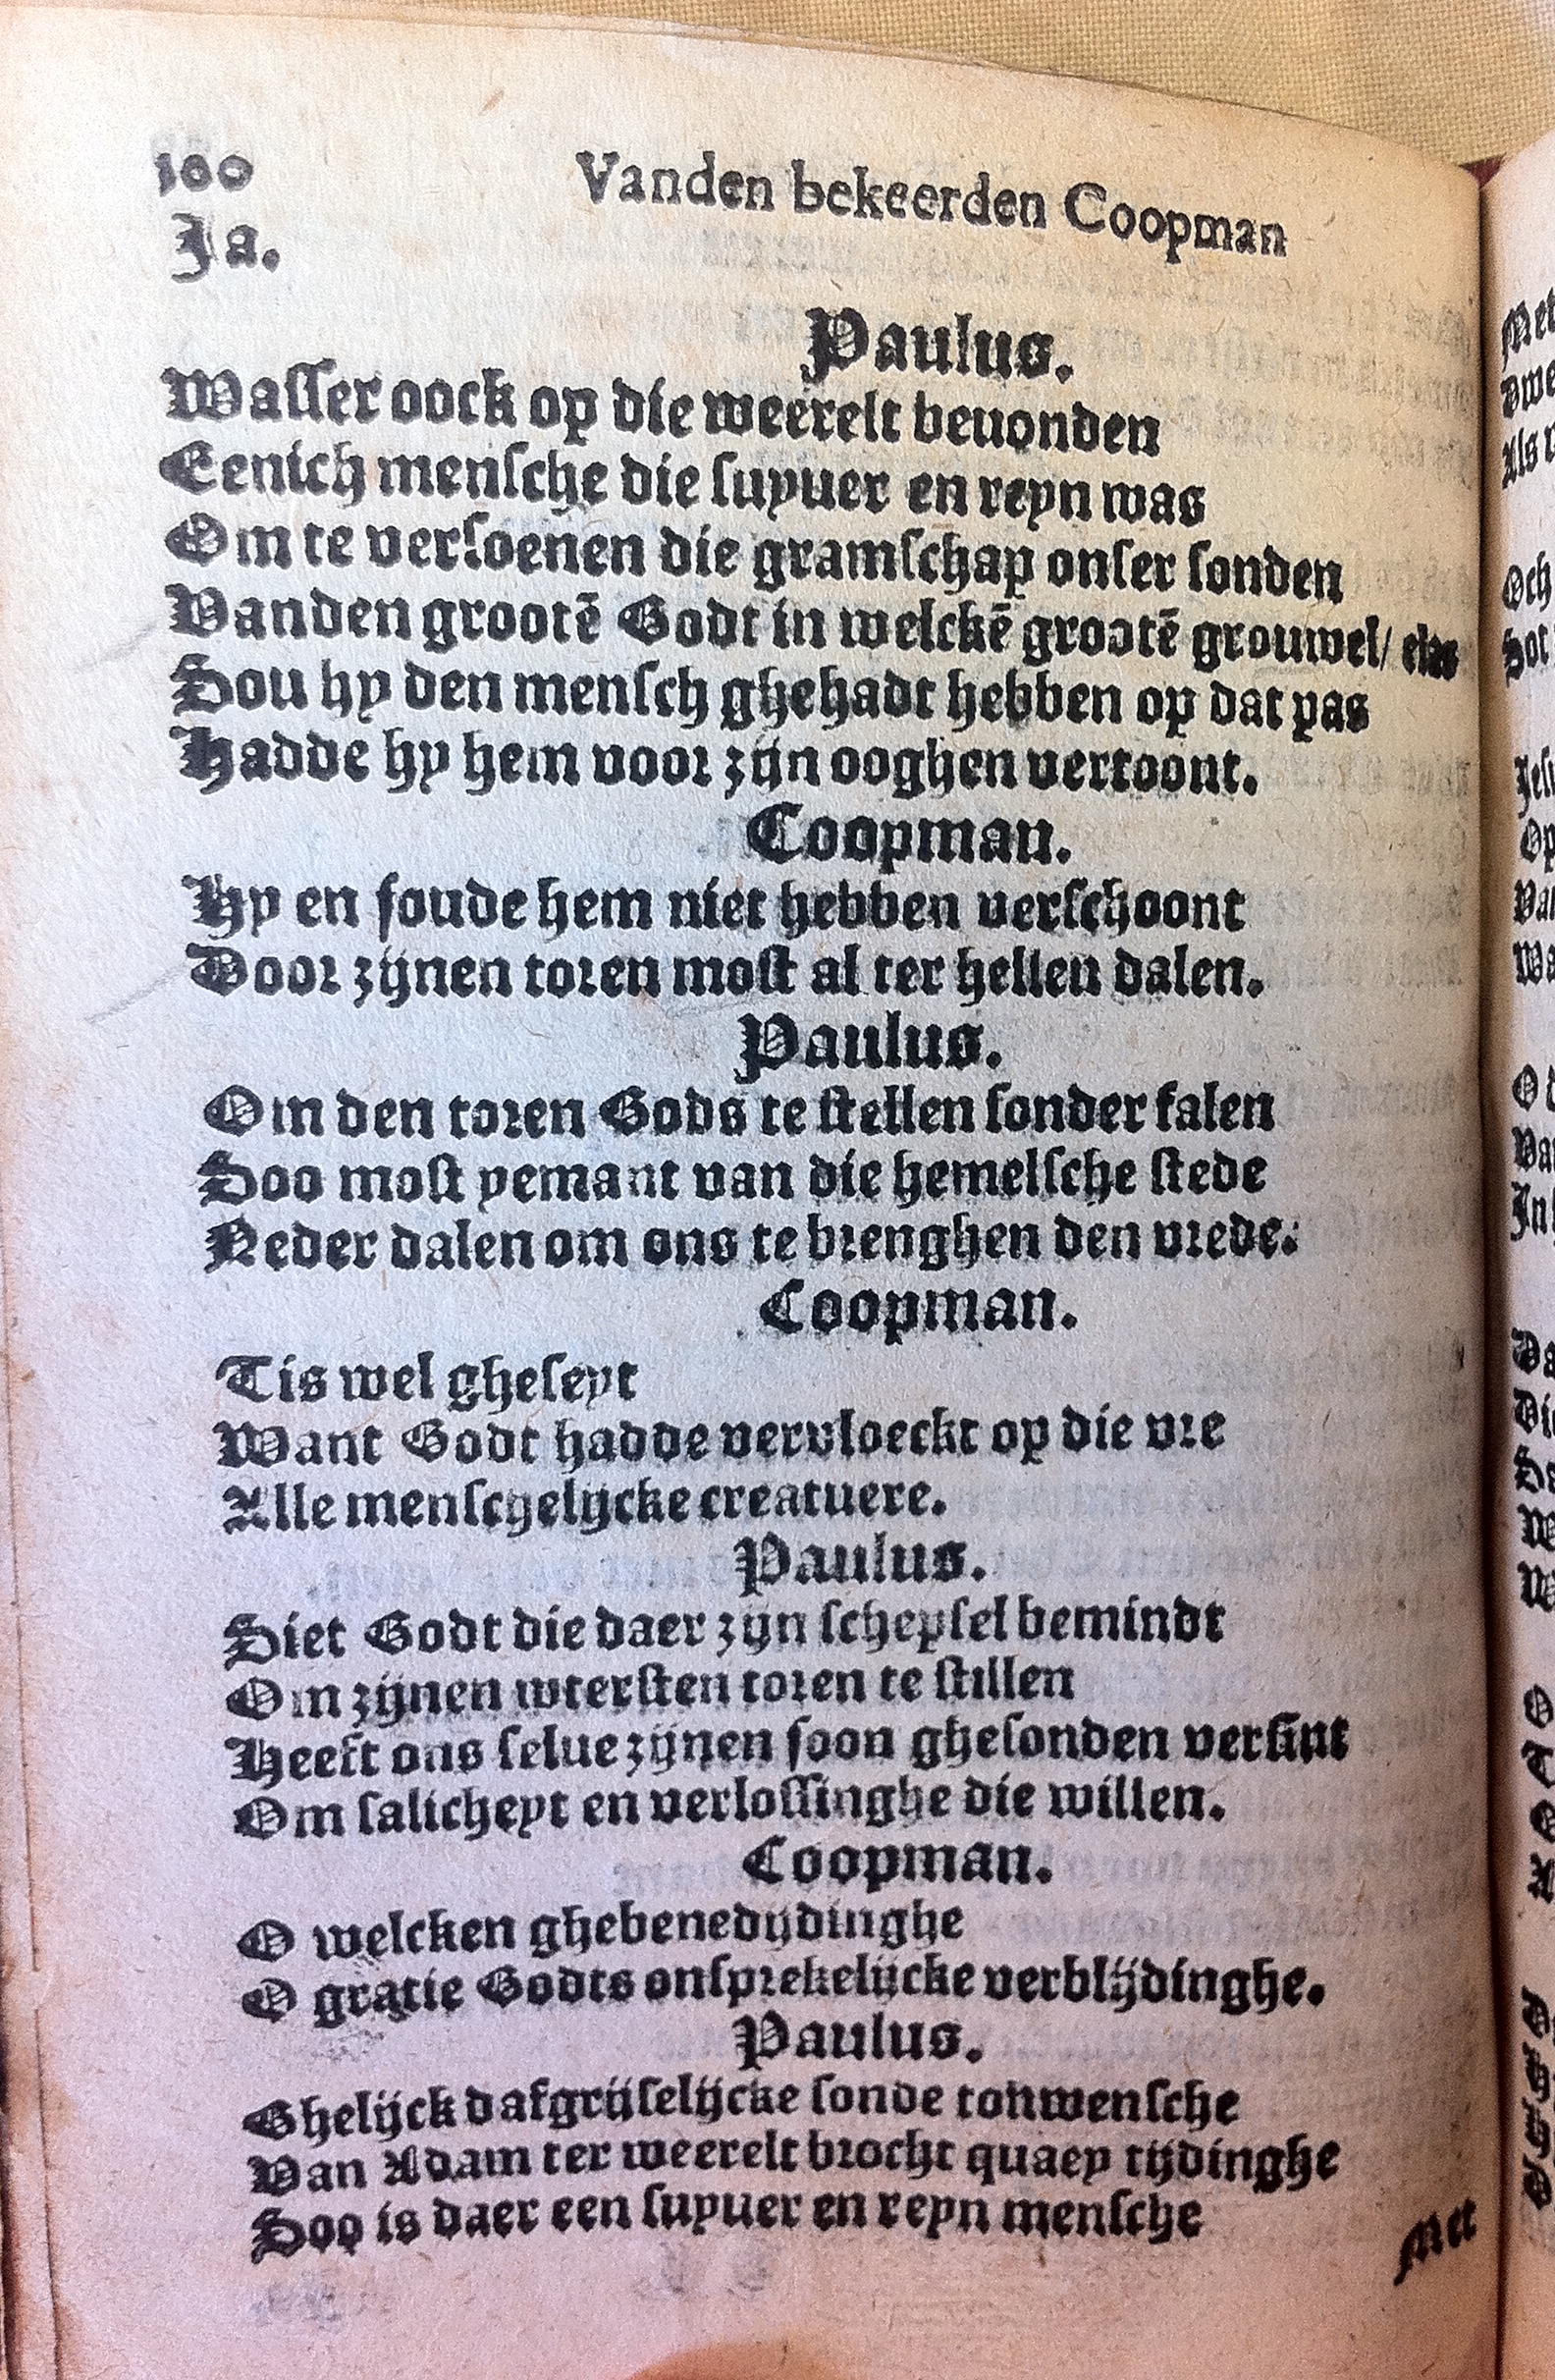 160 Vanden bekeerden Coopman
Ja.
Paulus.
Wasser oock op die weerelt beuonden
Eenich mensche die suyuer en reyn was
Om te versoenen die gramschap onser sonden
Vanden grootē Godt in welckē grootē grouwel/ elas
Sou hy den mensch ghehadt hebben op dat pas
Hadde hy hem voor zijn ooghen vertoont.
Coopman.
Hy en soude hem niet hebben verschoont
Door zijnen toren most al ter hellen dalen.
Paulus.
Om den toren Gods te stellen sonder falen
Soo most yemant van die hemelsche stede
Neder dalen om ons te brenghen den vrede.
Coopman.
Tis wel gheseyt
Want Godt hadde vervloeckt op die vre
Alle menschelijcke creatuere.
Paulus.
Siet Godt die daer zijn schepsel bemindt
Om zijnen wtersten toren te stillen
Heeft ons selue zijnen soon ghesonden versint
Om salicheyt en verlossinghe die willen.
Coopman.
O welcken ghebenedijdinghe
O gratie Godts onsprekelijcke verblijdinghe.
Paulus.
Ghelijck dafgrijselijcke sonde tonwensche
Van Adam ter weerelt brocht quaey tijdinghe
Soo is daer een suyuer en reyn mensche
Met